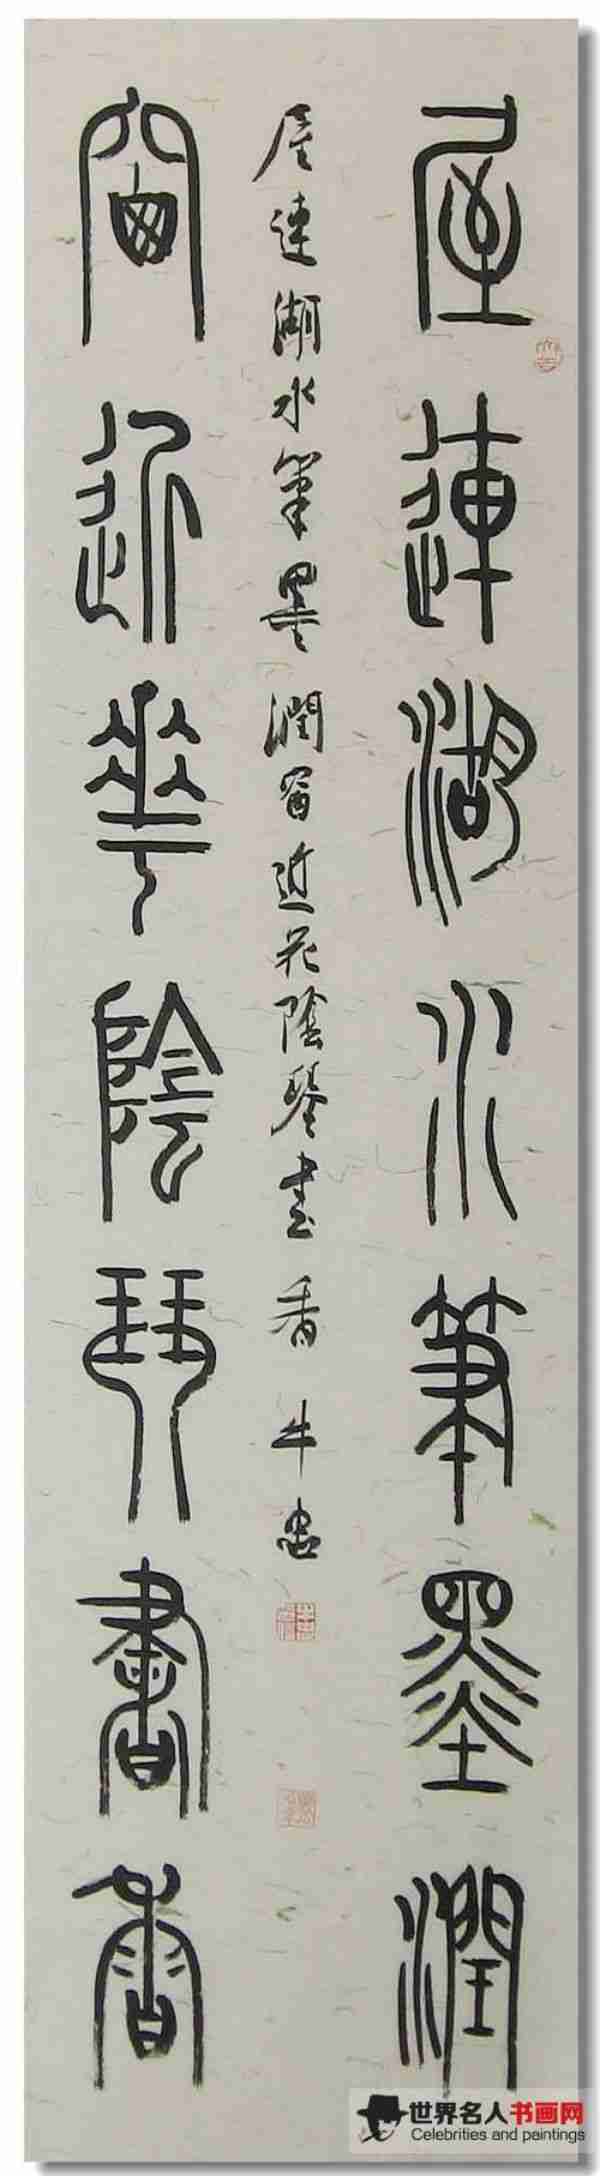 屋連湖水筆墨潤
屋連湖水筆墨潤窗近花陰琴書香 牛忠
窗近華陰琴書香
世界名人书画网
Celebrities and paintings